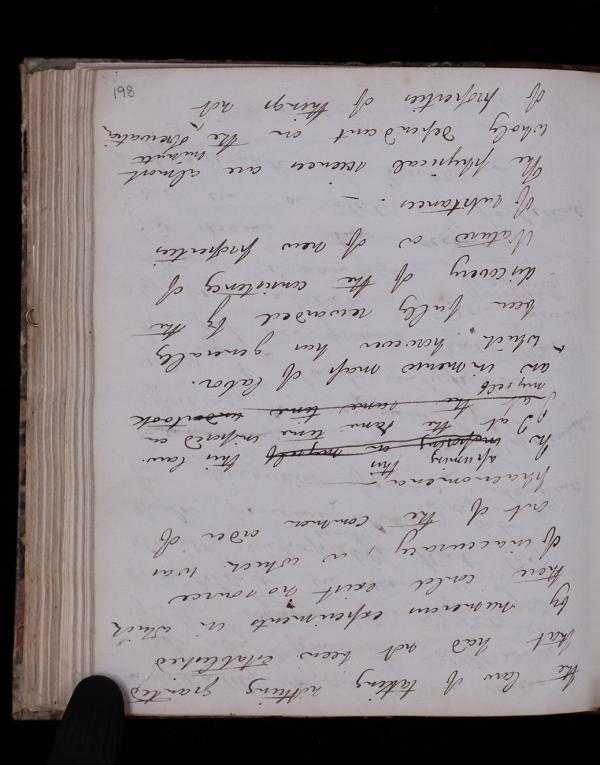 198
the law of taking nothing granted
that had not been established
by numerous experiments in which
there could exist no source
of inaccuracy, or which was
out of the common order of
phaenomena. —
assuming this
In imposing on myself this law
I at the same time imposed on
I at the same time undertook
myself
an immense mass of labor.
which however has generally
been fully rewarded by the
discovery of the consistency of
Nature or of new properties
of substances. —
The physical sciences are almost
minute
wholly dependent on the observation
of properties of things not